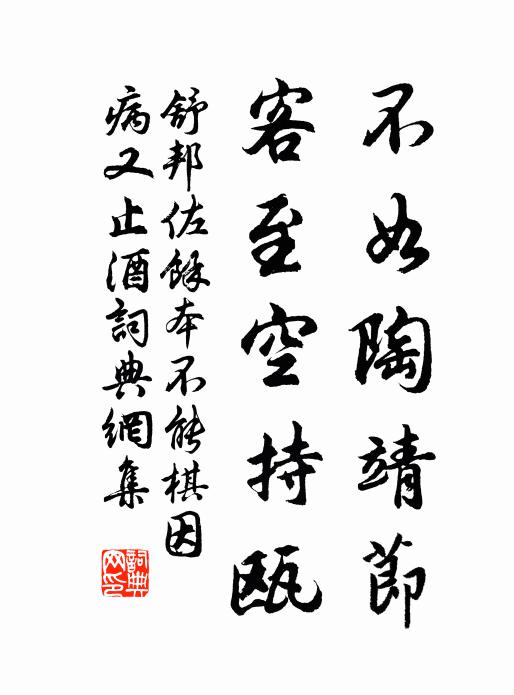 不如陶靖節
客至空持甌
舒邦佐餘本不能棋因
病又止酒詞典網集
詞典網印